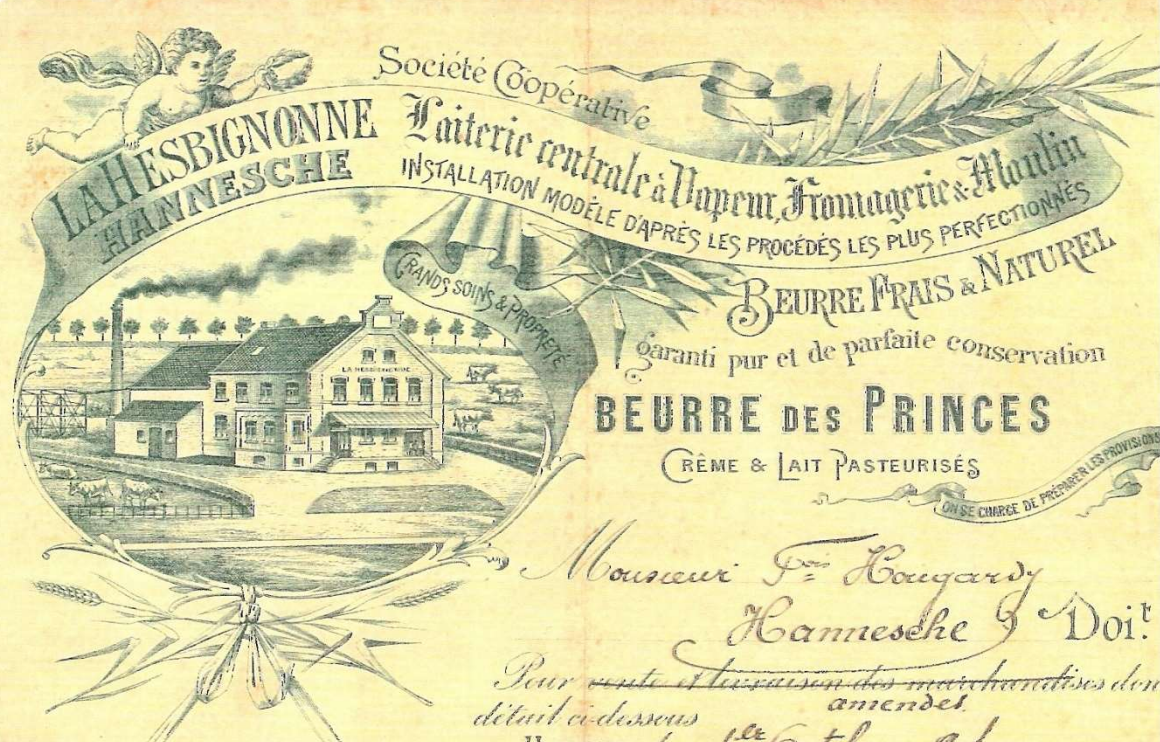 Société Coopérative
LA HESBIGNONNE
HANNESCHE
Laiterie centrale à Vapeur, Fromagerie & Moulin
INSTALLATION MODÈLE D'APRÈS LES PROCÉDÉS LES PLUS PERFECTIONNÉS
GRANDS SOINS & PROPRETÉ
BEURRE FRAIS & NATUREL
garanti pur et de parfaite conservation
LA HESBIGNONNE
BEURRE DES PRINCES
CRÊME & LAIT PASTEURISÉS
ON SE CHARGE DE PRÉPARER LES PROVISIONS
Monsieur Fois Hougardy
Hannesche Doit.
Pour vente et livraison des marchandises don
amendes
détail ci-dessous